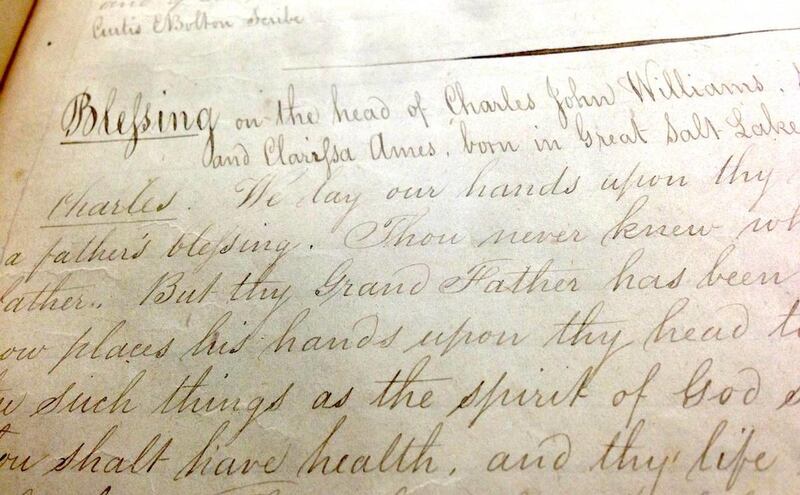 Curtis E Bolton Scribe
Bleſsing on the head of Charles John Williams.
and Clariſsa Ames, born in Great Salt Lake
Charles. We lay our hands upon thy
a father's bleſsing. Thou never knew
father. But thy Grand Father has been
places his hands upon thy head
such things as the spirit of God
shalt have health, and thy life